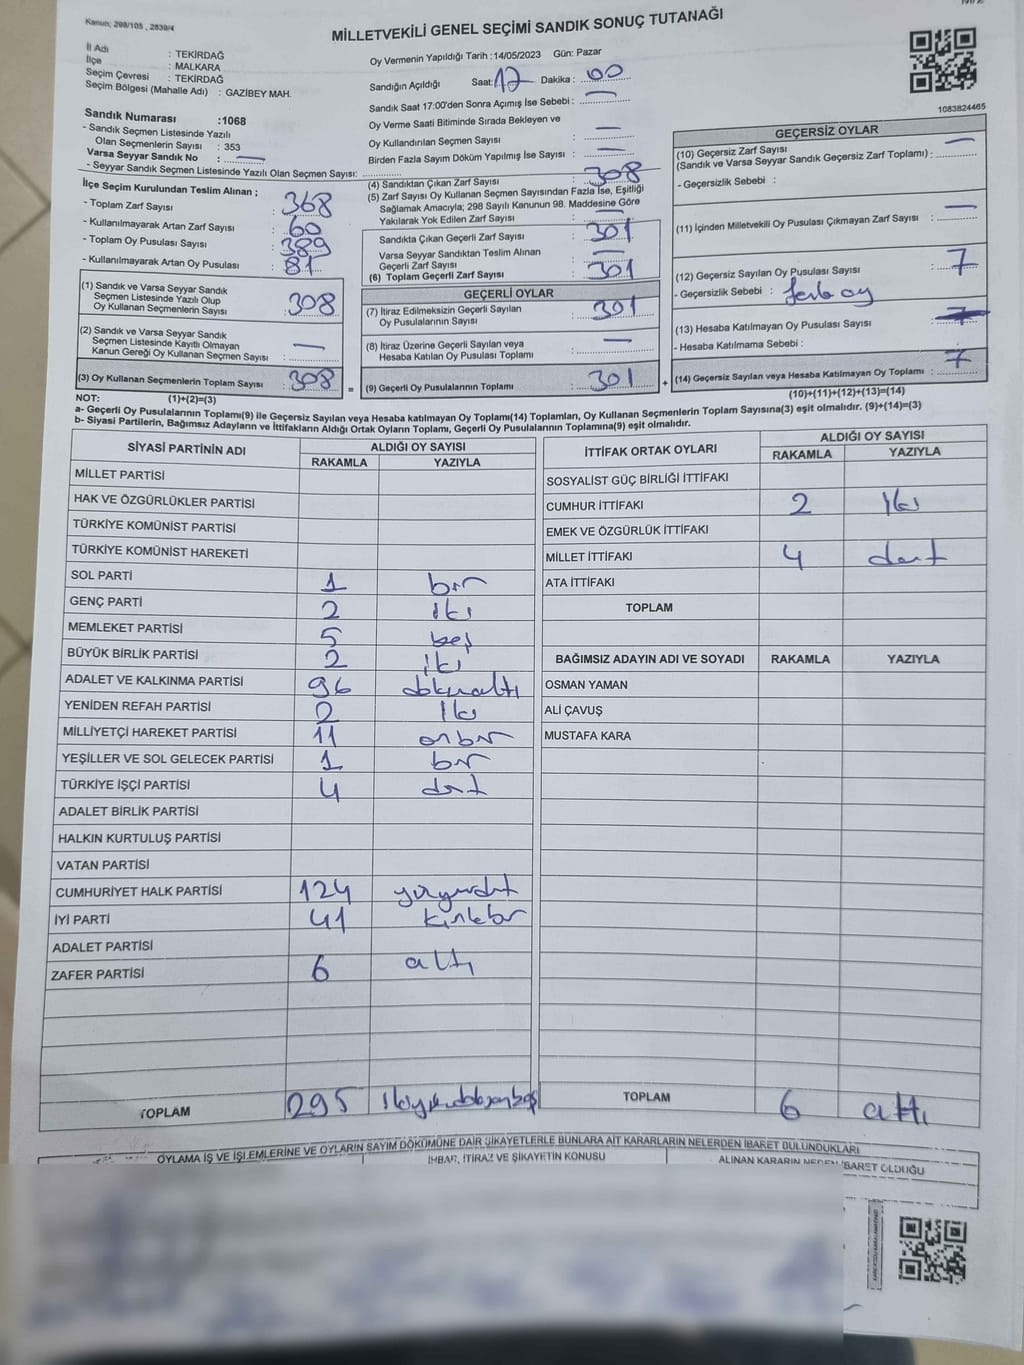 Kanun: 298/105 , 2839/4
MİLLETVEKİLİ GENEL SEÇİMİ SANDIK SONUÇ TUTANAĞI
İl Adı : TEKİRDAĞ
İlçe : MALKARA
Seçim Çevresi : TEKİRDAĞ
Seçim Bölgesi (Mahalle Adı) : GAZİBEY MAH.
Oy Vermenin Yapıldığı Tarih :14/05/2023 Gün: Pazar
Sandığın Açıldığı Saat: 17 Dakika : 00
Sandık Saat 17:00'den Sonra Açımış İse Sebebi : —
Oy Verme Saati Bitiminde Sırada Bekleyen ve
Oy Kullandırılan Seçmen Sayısı : —
Birden Fazla Sayım Döküm Yapılmış İse Sayısı : —
1083824465
Sandık Numarası :1068
- Sandık Seçmen Listesinde Yazılı
Olan Seçmenlerin Sayısı : 353
Varsa Seyyar Sandık No : —
- Seyyar Sandık Seçmen Listesinde Yazılı Olan Seçmen Sayısı:
İlçe Seçim Kurulundan Teslim Alınan ;
- Toplam Zarf Sayısı : 368
- Kullanılmayarak Artan Zarf Sayısı : 60
- Toplam Oy Pusulası Sayısı : 389
- Kullanılmayarak Artan Oy Pusulası : 81
(1) Sandık ve Varsa Seyyar Sandık
Seçmen Listesinde Yazılı Olup
Oy Kullanan Seçmenlerin Sayısı : 308
(2) Sandık ve Varsa Seyyar Sandık
Seçmen Listesinde Kayıtlı Olmayan
Kanun Gereği Oy Kullanan Seçmen Sayısı : —
(3) Oy Kullanan Seçmenlerin Toplam Sayısı : 308
(1)+(2)=(3)
(4) Sandıktan Çıkan Zarf Sayısı : 308
(5) Zarf Sayısı Oy Kullanan Seçmen Sayısından Fazla İse, Eşitliği
Sağlamak Amacıyla; 298 Sayılı Kanunun 98. Maddesine Göre
Yakılarak Yok Edilen Zarf Sayısı : —
Sandıkta Çıkan Geçerli Zarf Sayısı : 301
Varsa Seyyar Sandıktan Teslim Alınan
Geçerli Zarf Sayısı : —
(6) Toplam Geçerli Zarf Sayısı : 301
GEÇERLİ OYLAR
(7) İtiraz Edilmeksizin Geçerli Sayılan
Oy Pusulalarının Sayısı : 301
(8) İtiraz Üzerine Geçerli Sayılan veya
Hesaba Katılan Oy Pusulası Toplamı : —
= (9) Geçerli Oy Pusulalarının Toplamı : 301 +
GEÇERSİZ OYLAR
(10) Geçersiz Zarf Sayısı
(Sandık ve Varsa Seyyar Sandık Geçersiz Zarf Toplamı) : —
- Geçersizlik Sebebi :
(11) İçinden Milletvekili Oy Pusulası Çıkmayan Zarf Sayısı : —
(12) Geçersiz Sayılan Oy Pusulası Sayısı : 7
- Geçersizlik Sebebi :
(13) Hesaba Katılmayan Oy Pusulası Sayısı :
- Hesaba Katılmama Sebebi :
(14) Geçersiz Sayılan veya Hesaba Katılmayan Oy Toplamı : 7
(10)+(11)+(12)+(13)=(14)
NOT:
a- Geçerli Oy Pusulalarının Toplamı(9) ile Geçersiz Sayılan veya Hesaba katılmayan Oy Toplamı(14) Toplamları, Oy Kullanan Seçmenlerin Toplam Sayısına(3) eşit olmalıdır. (9)+(14)=(3)
b- Siyasi Partilerin, Bağımsız Adayların ve İttifakların Aldığı Ortak Oyların Toplamı, Geçerli Oy Pusulalarının Toplamına(9) eşit olmalıdır.
SİYASİ PARTİNİN ADI ALDIĞI OY SAYISI
RAKAMLA YAZIYLA
MİLLET PARTİSİ
HAK VE ÖZGÜRLÜKLER PARTİSİ
TÜRKİYE KOMÜNİST PARTİSİ
TÜRKİYE KOMÜNİST HAREKETİ
SOL PARTİ 1 bir
GENÇ PARTİ 2 iki
MEMLEKET PARTİSİ 5 beş
BÜYÜK BİRLİK PARTİSİ 2 iki
ADALET VE KALKINMA PARTİSİ 96
YENİDEN REFAH PARTİSİ 2 iki
MİLLİYETÇİ HAREKET PARTİSİ 11 onbir
YEŞİLLER VE SOL GELECEK PARTİSİ 1 bir
TÜRKİYE İŞÇİ PARTİSİ 4 dört
ADALET BİRLİK PARTİSİ
HALKIN KURTULUŞ PARTİSİ
VATAN PARTİSİ
CUMHURİYET HALK PARTİSİ 124
İYİ PARTİ 41
ADALET PARTİSİ
ZAFER PARTİSİ 6 altı
TOPLAM 295
İTTİFAK ORTAK OYLARI ALDIĞI OY SAYISI
RAKAMLA YAZIYLA
SOSYALİST GÜÇ BİRLİĞİ İTTİFAKI
CUMHUR İTTİFAKI 2 iki
EMEK VE ÖZGÜRLÜK İTTİFAKI
MİLLET İTTİFAKI 4 dört
ATA İTTİFAKI
TOPLAM
BAĞIMSIZ ADAYIN ADI VE SOYADI RAKAMLA YAZIYLA
OSMAN YAMAN
ALİ ÇAVUŞ
MUSTAFA KARA
TOPLAM 6 altı
OYLAMA İŞ VE İŞLEMLERİNE VE OYLARIN SAYIM DÖKÜMÜNE DAİR ŞİKAYETLERLE BUNLARA AİT KARARLARIN NELERDEN İBARET BULUNDUKLARI
İHBAR, İTİRAZ VE ŞİKAYETİN KONUSU
ALINAN KARARIN NEDEN İBARET OLDUĞU